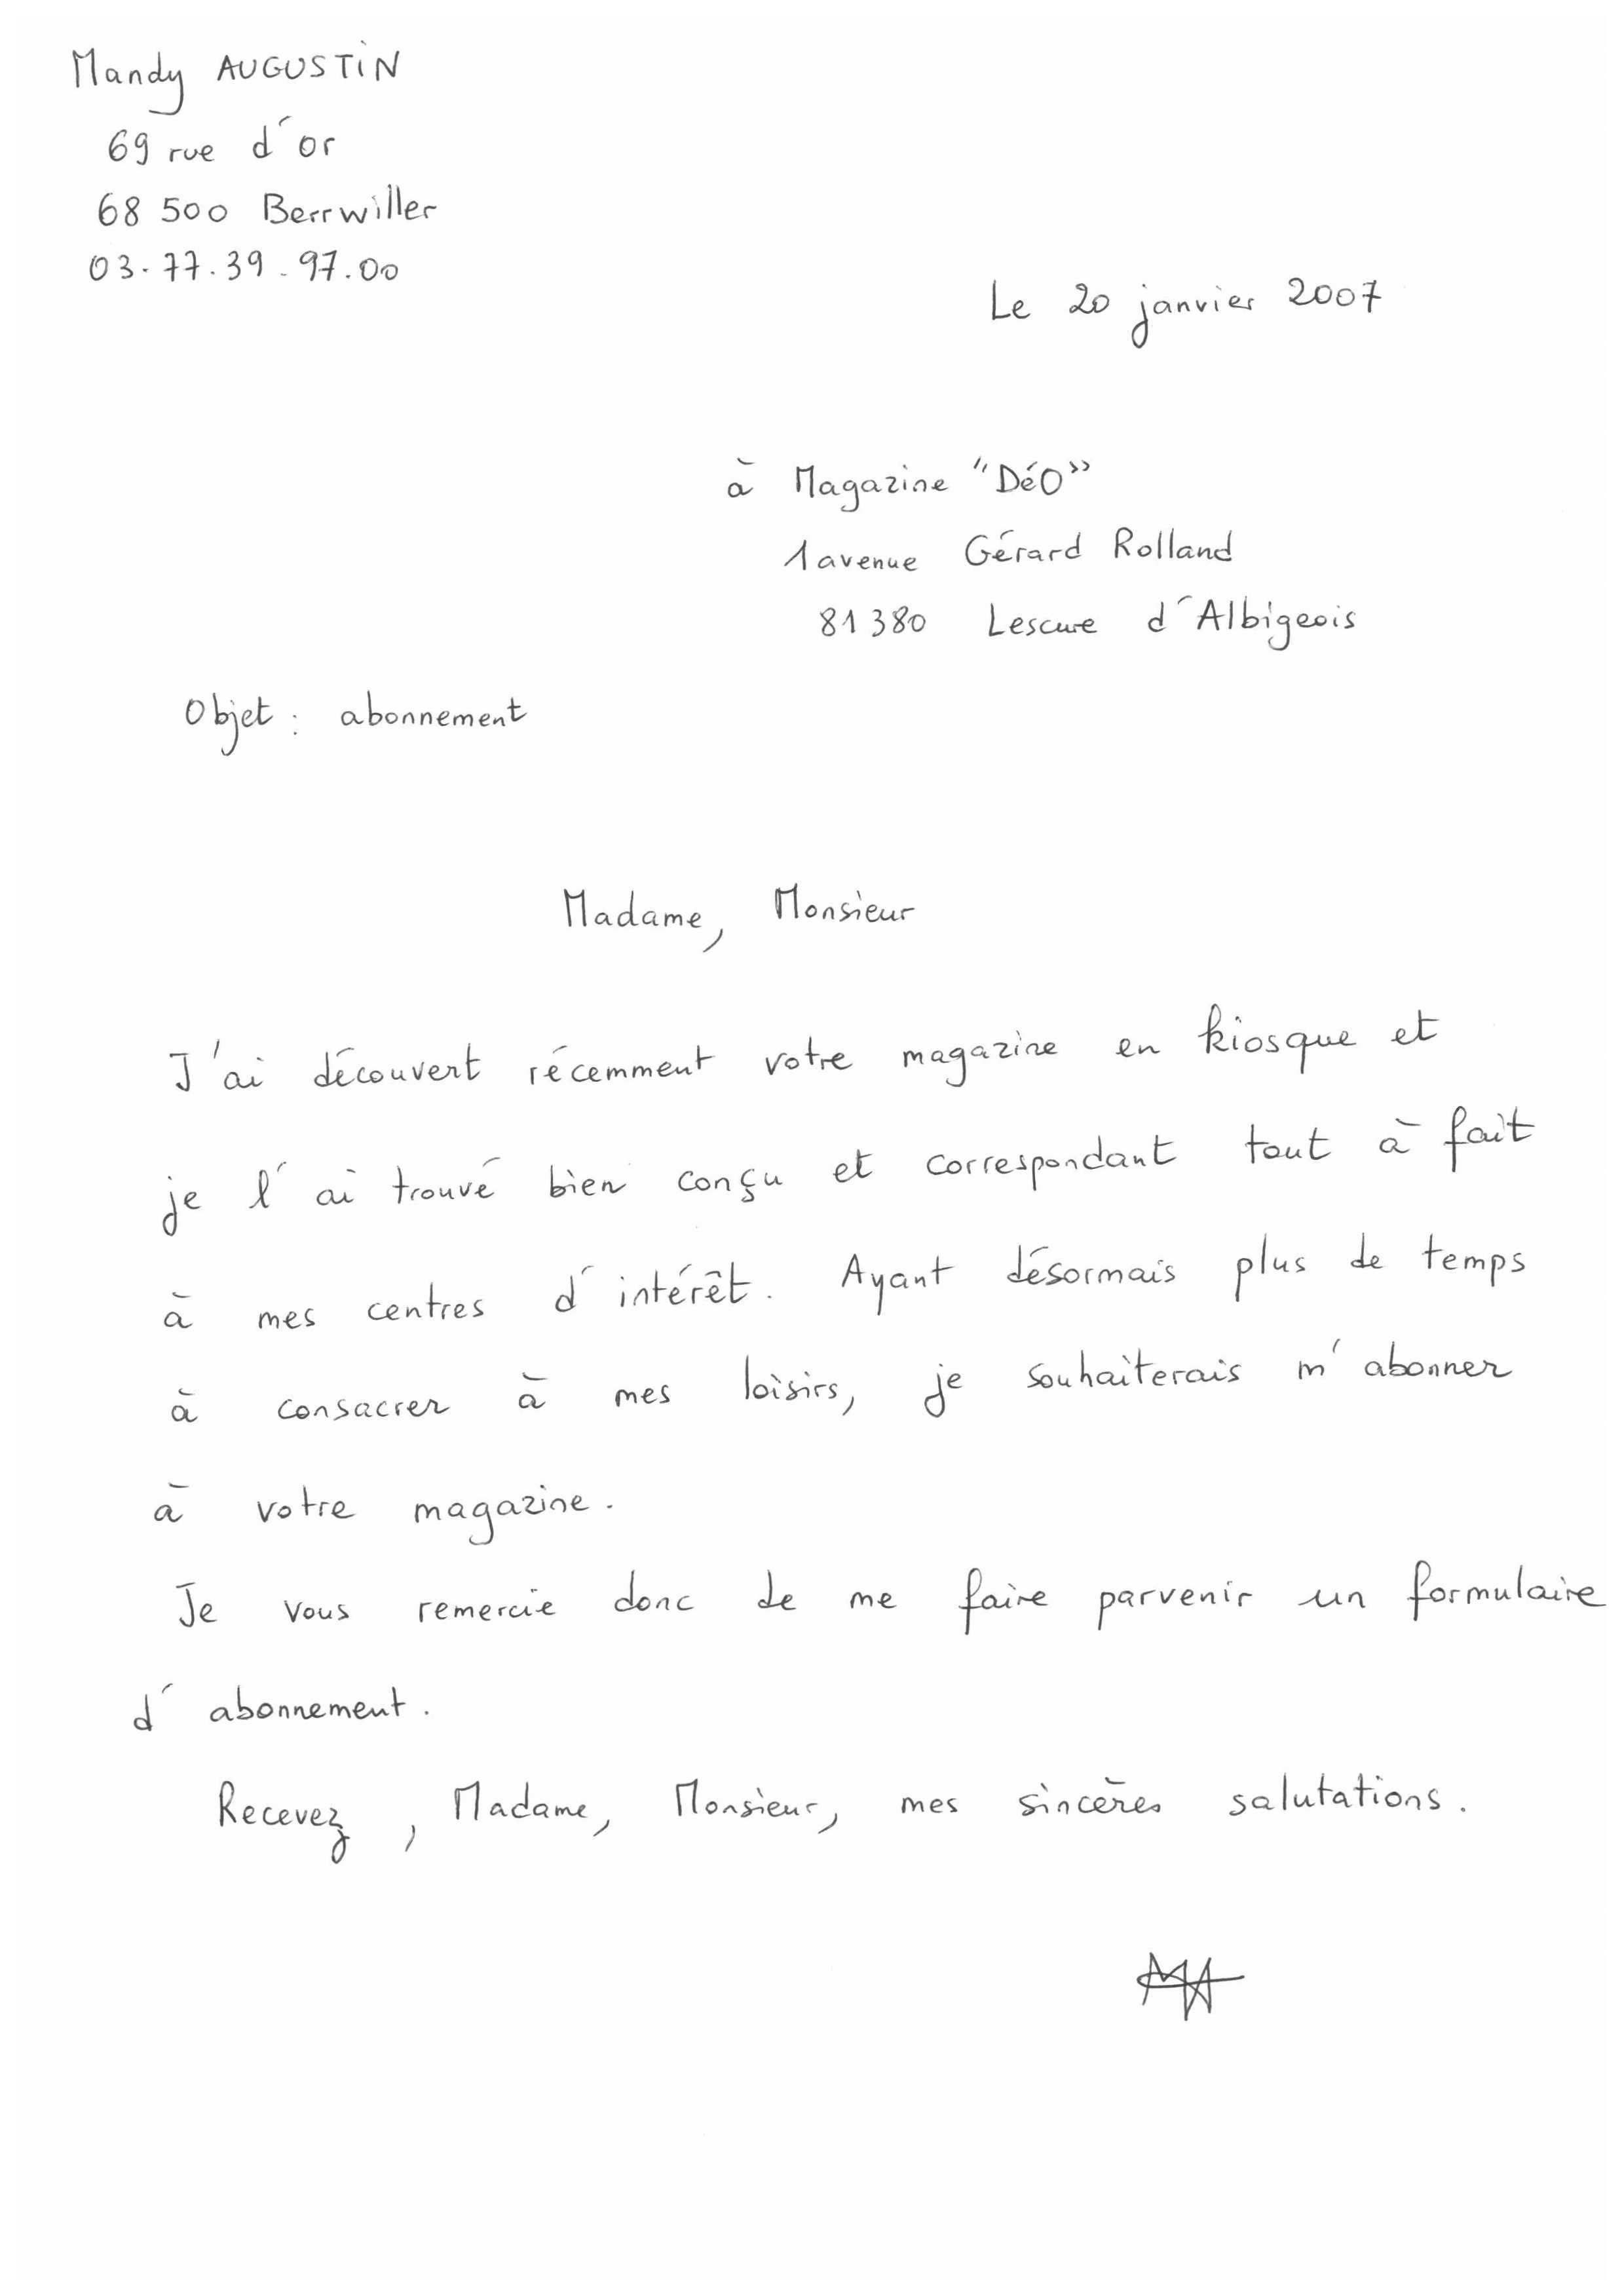 Mandy AUGUSTIN
69 rue d'or
68 500 Berrwiller
03.77.39.97.00
Le 20 janvier 2007
à Magazine "DéO"
1 avenue Gérard Rolland
81 380 Lescure d'Albigeois
Objet : abonnement
Madame, Monsieur
J'ai découvert récemment votre magazine en kiosque et
je l'ai trouvé bien conçu et correspondant tout à fait
à mes centres d'intérêt. Ayant désormais plus de temps
à consacrer à mes loisirs, je souhaiterais m'abonner
à votre magazine.
Je vous remercie donc de me faire parvenir un formulaire
d'abonnement.
Recevez, Madame, Monsieur, mes sincères salutations.
MA